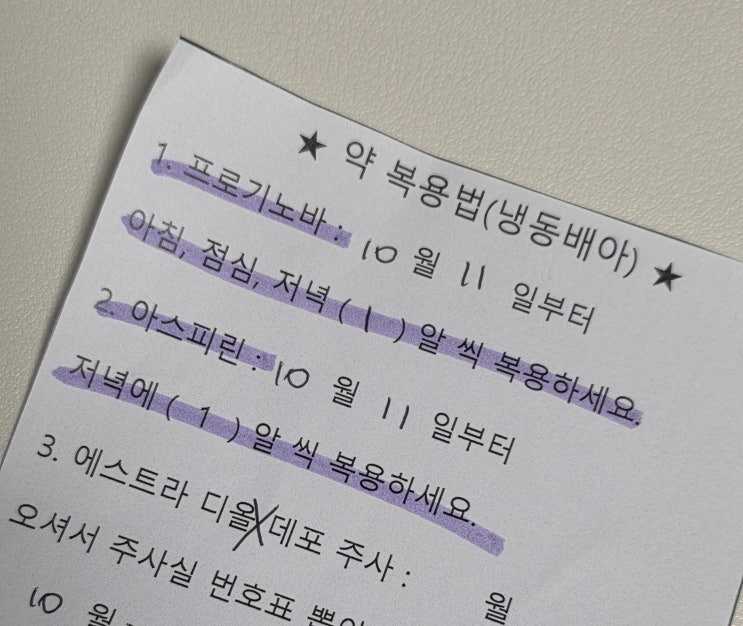 ★ 약 복용법(냉동배아) ★
1. 프로기노바 : 10 월 11 일부터
아침, 점심, 저녁 ( 1 ) 알 씩 복용하세요.
2. 아스피린 : 10 월 11 일부터
저녁에 ( 1 ) 알 씩 복용하세요.
3. 에스트라 디올 데포 주사 : 월
오셔서 주사실 번호표
10 월